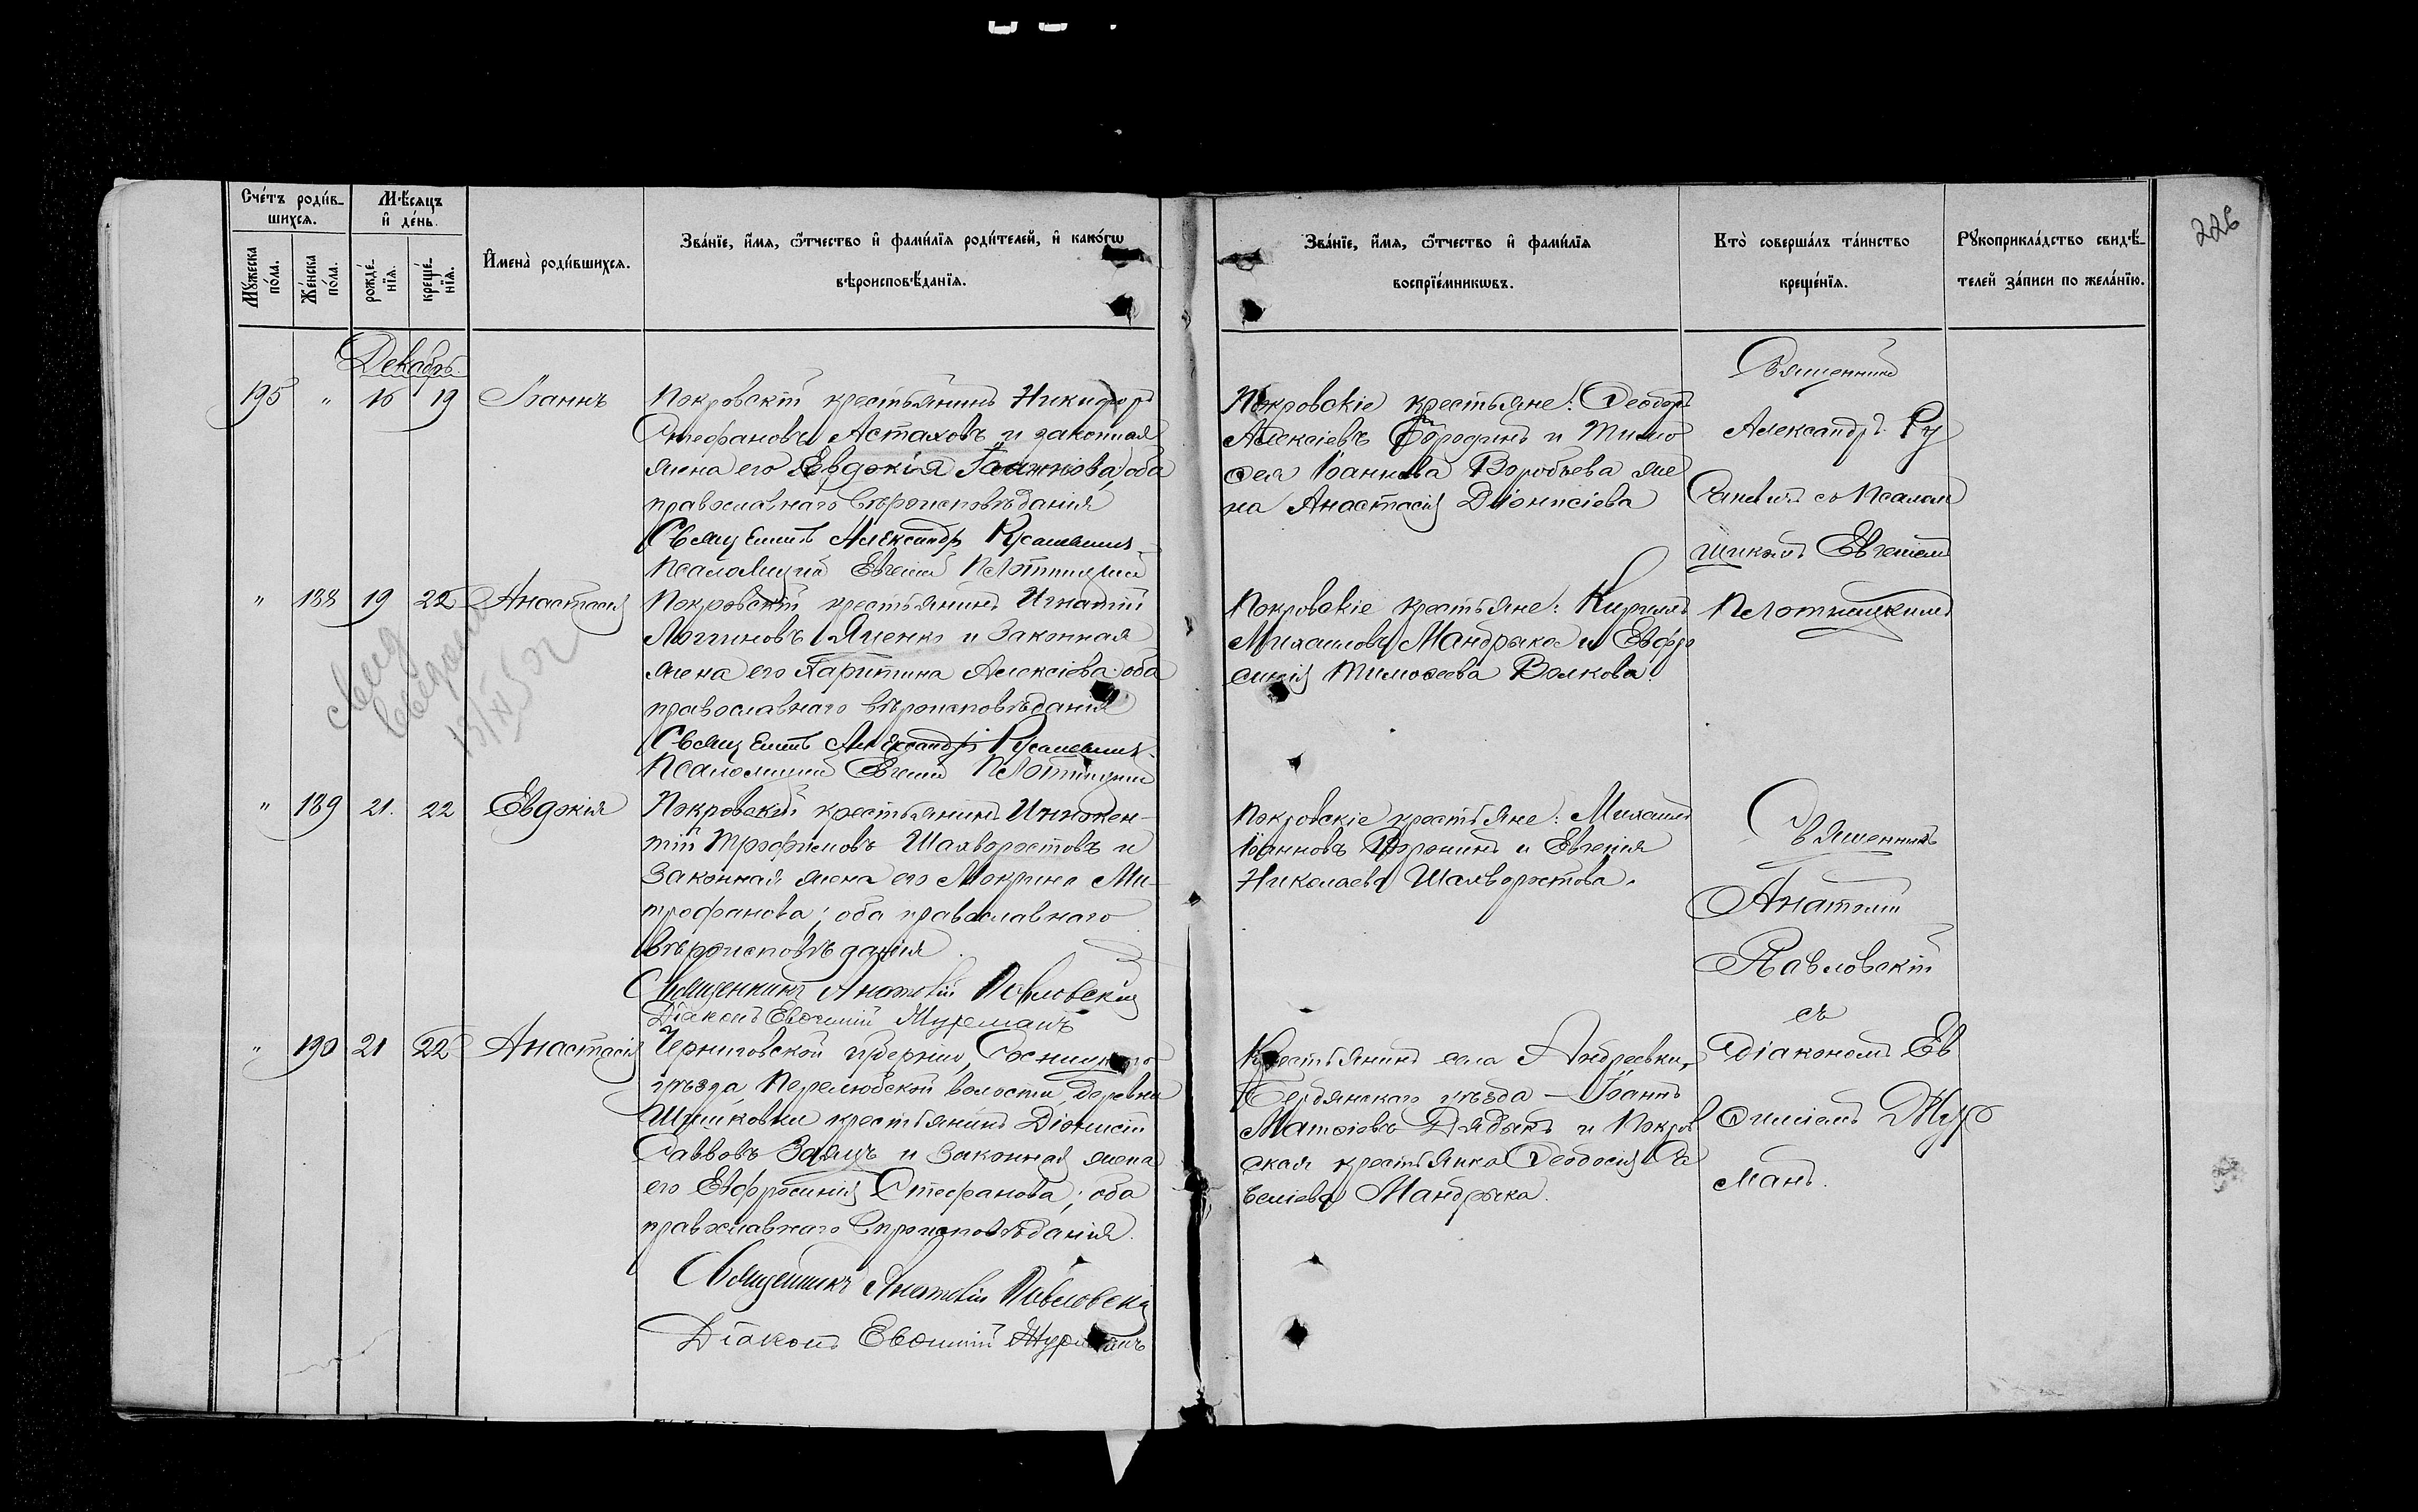 226
Сче́тъ роди́в-
шихся.
Мѣ́сяцъ
и҆ де́нь.
Мꙋ́жеска
по́ла.
Же́нска
по́ла.
рожде́-
нїя.
креще́-
нїя.
И҆мена̀ роди́вшихся.
Зва́нїе, и҆́мя, ѻ҆́тчество и҆ фами́лїя роди́телей, и҆ какóгѡ
вѣроисповѣ́данїя.
Зва́нїе, и҆́мя, ѻ҆́тчество и҆ фами́лїя
воспрїе́мникѡвъ.
Кто̀ соверша́лъ та́инство
креще́нїя.
Рꙋкоприкла́дство свидѣ́-
телей за́писи по жела́нїю.
Декабрь.
195 " 16 19 Іоаннъ
Покровскій крестьянинъ Никифоръ
Стефановъ Астаховъ и законная
жена его Евдокія Іоаннова, оба
православнаго вѣроисповѣданія
Священникъ Александръ
Псаломщикъ Евгеній Плотницкій
Покровскіе крестьяне: Ѳеодоръ
Алексіевъ Бородинъ и Тимо
ѳея Іоаннова Воробьева же
на Анастасія Діонисіева
Священникъ
Александръ Ру
со Псалом
щикомъ Евгеніемъ
Плотницкимъ
" 188 19 22 Анастасія
Покровскій крестьянинъ Игнатій
Логиновъ Яценко и законная
жена его Харитина Алексіева; оба
православнаго вѣроисповѣданія
Священникъ Александръ
Псаломщикъ Евгеній Плотницкій
Покровскіе крестьяне: Кириллъ
Михаиловъ Мандрыка и Евфро
синія Тимоѳеева Волкова.
" 189 21. 22 Евдокія
Покровскій крестьянинъ Иннокен-
тій Трофимовъ Шалворостовъ и
законная жена его Мокрина Ми-
трофанова; оба православнаго
вѣроисповѣданія.
Священникъ Анатолій Павловскій
Діаконъ Евѳимій Мурсманъ
Покровскіе крестьяне: Михаилъ
Іоанновъ Воронинъ и Евгенія
Николаева Шалворостова.
Священникъ
Анатолій
Павловскій
съ
Діакономъ Ев
ѳиміемъ
маномъ.
" 190 21 22 Анастасія
Черниговской губерніи, Сосницкаго
уѣзда, Перелюбской волости, деревни
крестьянинъ Діонисій
Саввовъ Заяцъ и законная жена
его Евфросинія Стефанова; оба
православнаго вѣроисповѣданія.
Священникъ Анатолій Павловскій
Діаконъ Евѳимій
Крестьянинъ села Андреевки,
Бердянскаго уѣзда — Іоаннъ
Матѳіевъ и Покров
ская крестьянка Ѳеодосія Са
веліева Мандрыка.